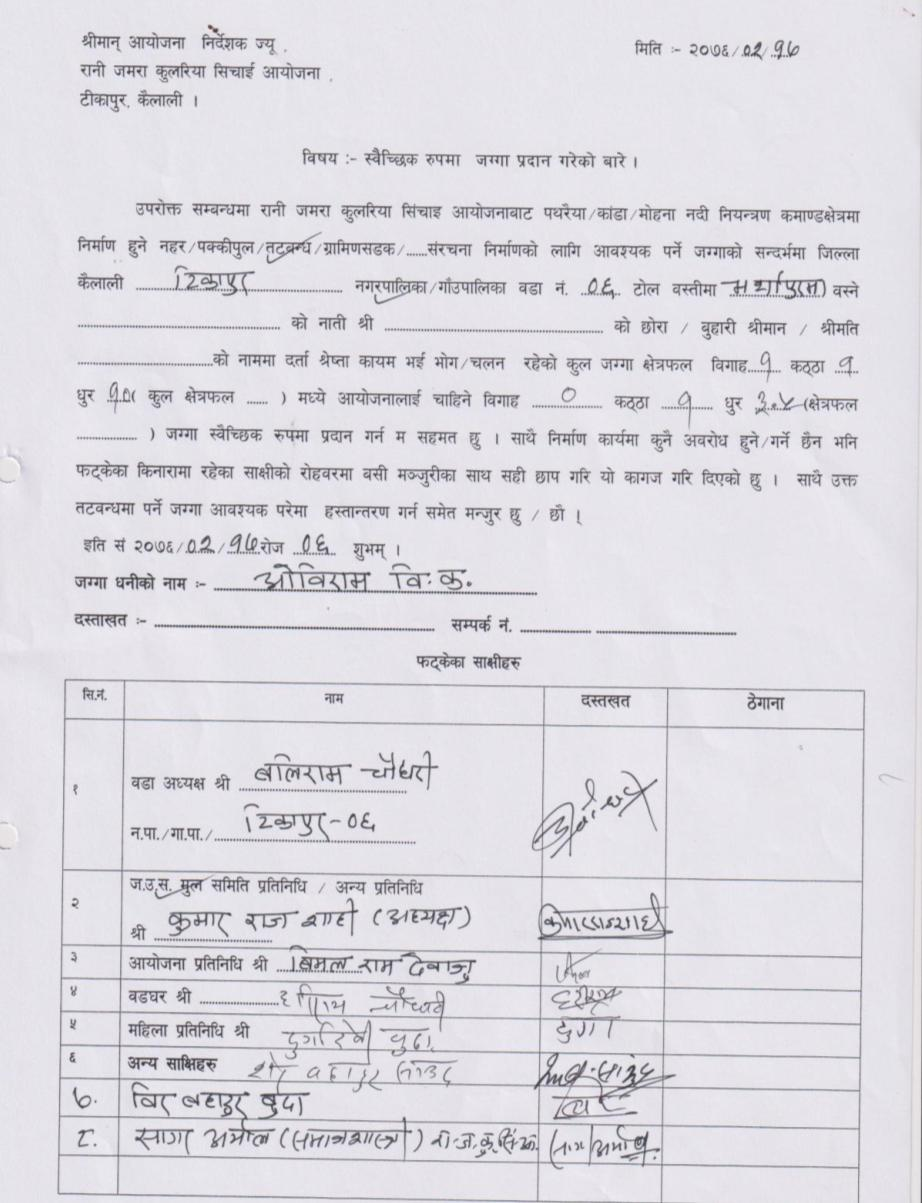 श्रीमान् आयोजना निर्देशक ज्यू ,
मिति :- २०७६/०२/१७
रानी जमरा कुलरिया सिचाई आयोजना ,
टीकापुर, कैलाली ।
विषय :- स्वैच्छिक रुपमा जग्गा प्रदान गरेको बारे ।
उपरोक्त सम्बन्धमा रानी जमरा कुलरिया सिंचाइ आयोजनाबाट पथरैया/कांडा/मोहना नदी नियन्त्रण कमाण्डक्षेत्रमा
निर्माण हुने नहर/पक्कीपुल/तटबन्ध/ग्रामिणसडक/......संरचना निर्माणको लागि आवश्यक पर्ने जग्गाको सन्दर्भमा जिल्ला
कैलाली ........ टिकापुर ........ नगरपालिका/गाँउपालिका वडा नं. ०६ टोल वस्तीमा वस्ने
........ को नाती श्री ........ को छोरा / बुहारी श्रीमान / श्रीमति
........को नाममा दर्ता श्रेष्ता कायम भई भोग/चलन रहेको कुल जग्गा क्षेत्रफल विगाह १ कठ्ठा १
धुर १० ( कुल क्षेत्रफल ...... ) मध्ये आयोजनालाई चाहिने विगाह ० कठ्ठा १ धुर ३.५ (क्षेत्रफल
........ ) जग्गा स्वैच्छिक रुपमा प्रदान गर्न म सहमत छु । साथै निर्माण कार्यमा कुनै अवरोध हुने/गर्ने छैन भनि
फट्केका किनारामा रहेका साक्षीको रोहवरमा बसी मञ्जुरीका साथ सही छाप गरि यो कागज गरि दिएको छु । साथै उक्त
तटवन्धमा पर्ने जग्गा आवश्यक परेमा हस्तान्तरण गर्न समेत मन्जुर छु / छौ ।
इति सं २०७६/०२/१७ रोज ०६ शुभम् ।
जग्गा धनीको नाम :- ओविराम वि.क.
दस्ताखत :- ........ सम्पर्क नं. ........
फट्केका साक्षीहरु
सि.नं. नाम दस्तखत ठेगाना
१ वडा अध्यक्ष श्री बलिराम चौधरी
न.पा./गा.पा./ टिकापुर-०६
२ ज.उ.स. मुल समिति प्रतिनिधि / अन्य प्रतिनिधि
श्री कुमार राज शाही (अध्यक्ष) कुमारराजशाही
३ आयोजना प्रतिनिधि श्री बिमल राम देवाजु
४ वडघर श्री चौधरी
५ महिला प्रतिनिधि श्री दुर्गादेवी बुढा दुर्गा
६ अन्य साक्षिहरु शेर बहादुर साउद
७. विर बहादुर बुढा
८. सागर अर्याल (समाजशास्त्री) रा.ज.कु.सिं.आ.